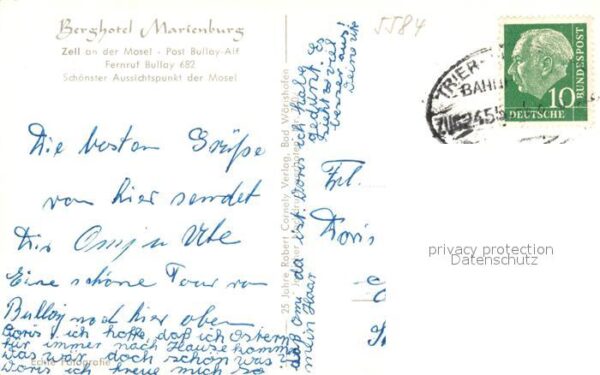 Berghotel Marienburg
Zell an der Mosel - Post Bullay-Alf
Fernruf Bullay 682
Schönster Aussichtspunkt der Mosel
Die besten Grüße
von hier sendet
Dir Omi u Ute
Eine schöne Tour von
Bullay nach hier oben
Doris, ich hoffe, daß ich Ostern
für immer nach Hause komme
das wär doch schön was
Doris ich freue mich so
Echte Fotografie
25 Jahre Robert Cornely Verlag, Bad Wörishofen
daß Omi da ist. Doris ich habe
mein Haar
gedünt. Es
sieht so viel
besser aus!
Deine Ute
5584
Frl.
Doris
TRIER
BAHN
ZUG 2455
10
DEUTSCHE
BUNDESPOST
privacy protection
Datenschutz